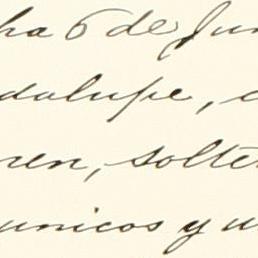 ha 6 de Jun
dalupe, c
ren, solte
unicos y u